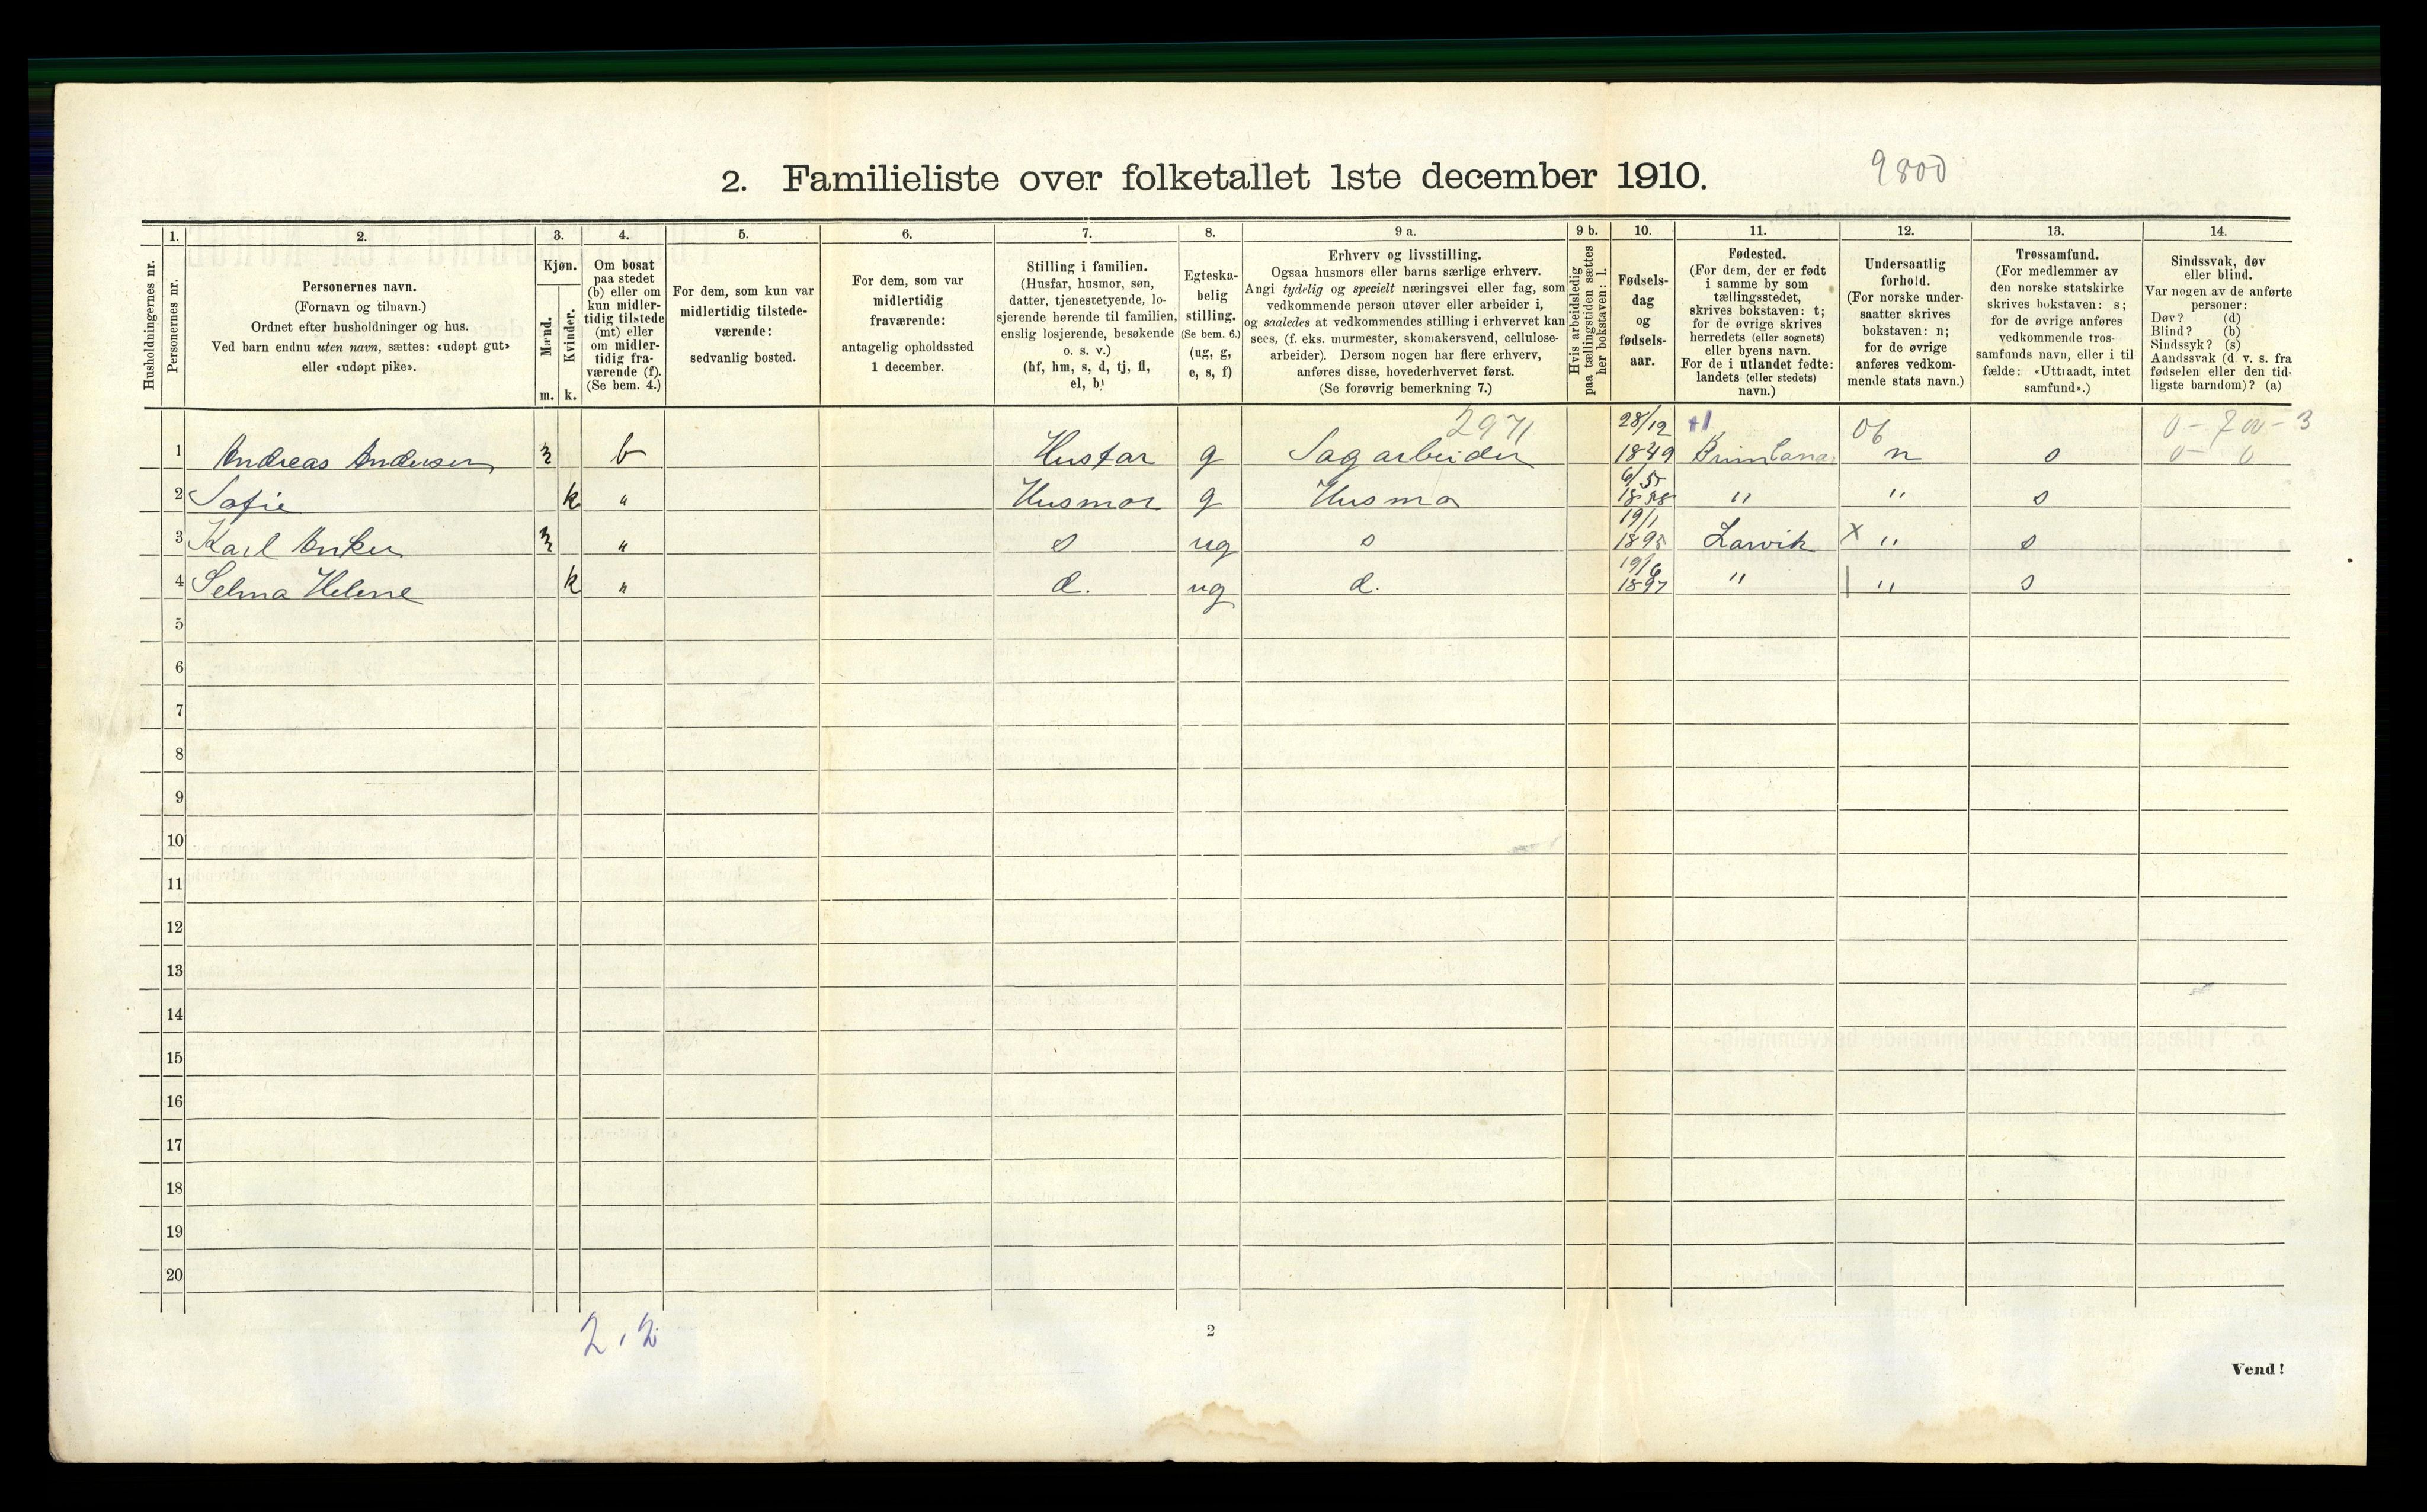 2. Familieliste over folketallet 1ste december 1910.
9800
Husholdningernes nr.
1.
Personernes nr.
2.
Personernes navn.
(Fornavn og tilnavn.)
Ordnet efter husholdninger og hus.
Ved barn endnu uten navn, sættes: «udøpt gut»
eller «udøpt pike».
3.
Kjøn.
Mænd.
Kvinder.
m. k.
4.
Om bosat
paa stedet
(b) eller om
kun midler-
tidig tilstede
(mt) eller
om midler-
tidig fra-
værende (f).
(Se bem. 4.)
5.
For dem, som kun var
midlertidig tilstede-
værende:
sedvanlig bosted.
6.
For dem, som var
midlertidig
fraværende:
antagelig opholdssted
1 december.
7.
Stilling i familien.
(Husfar, husmor, søn,
datter, tjenestetyende, lo-
sjerende hørende til familien,
enslig losjerende, besøkende
o. s. v.)
(hf, hm, s, d, tj, fl,
el, b)
8.
Egteska-
belig
stilling.
(Se bem. 6.)
(ug, g,
e, s, f)
9 a.
Erhverv og livsstilling.
Ogsaa husmors eller barns særlige erhverv.
Angi tydelig og specielt næringsvei eller fag, som
vedkommende person utøver eller arbeider i,
og saaledes at vedkommendes stilling i erhvervet kan
sees, (f. eks. murmester, skomakersvend, cellulose-
arbeider). Dersom nogen har flere erhverv,
anføres disse, hovederhvervet først.
(Se forøvrig bemerkning 7.)
9 b.
Hvis arbeidsledig
paa tællingstiden sættes
her bokstaven: l.
10.
Fødsels-
dag
og
fødsels-
aar.
11.
Fødested.
(For dem, der er født
i samme by som
tællingsstedet,
skrives bokstaven: t;
for de øvrige skrives
herredets (eller sognets)
eller byens navn.
For de i utlandet fødte:
landets (eller stedets)
navn.)
12.
Undersaatlig
forhold.
(For norske under-
saatter skrives
bokstaven: n;
for de øvrige
anføres vedkom-
mende stats navn.)
13.
Trossamfund.
(For medlemmer av
den norske statskirke
skrives bokstaven: s;
for de øvrige anføres
vedkommende tros-
samfunds navn, eller i til-
fælde: «Uttraadt, intet
samfund».)
14.
Sindssvak, døv
eller blind.
Var nogen av de anførte
personer:
Døv? (d)
Blind? (b)
Sindssyk? (s)
Aandssvak (d. v. s. fra
fødselen eller den tid-
ligste barndom)? (a)
2971 28/12 06 0 - 700 - 3
1 Andreas Andersen m b Husfar g Sagarbeider 1849 n s 0 - 0
2 Sofie k " Husmor g Husmo 1858 " " s
19/1
3 Karl Anker m " s ug s 1895 Larvik X " s
19/6
4 Selma Helene k " d. ug d. 1897 " " s
5
6
7
8
9
10
11
12
13
14
15
16
17
18
19
20
2 . 2
2
Vend!